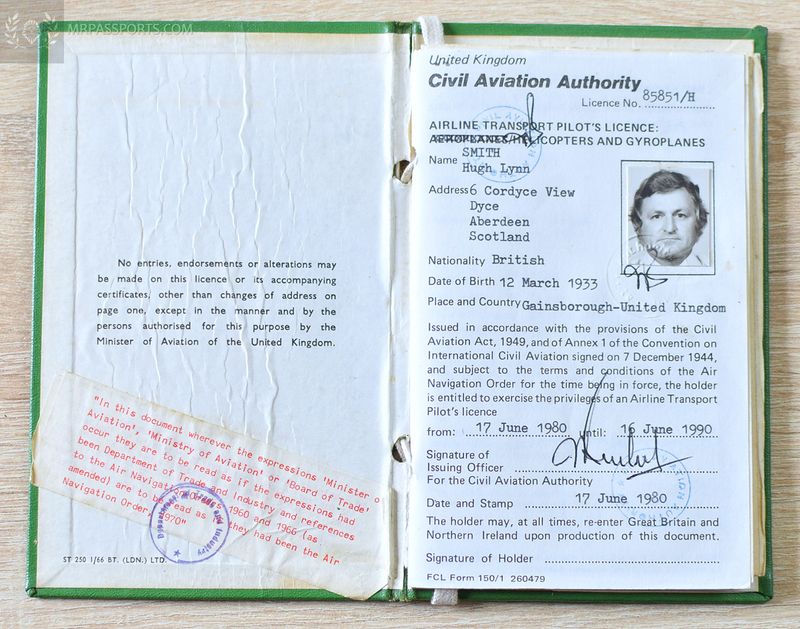 MRPASSPORTS.COM
No entries, endorsements or alterations may
be made on this licence or its accompanying
certificates, other than changes of address on
page one, except in the manner and by the
persons authorised for this purpose by the
Minister of Aviation of the United Kingdom.
"In this document wherever the expressions 'Minister o
Aviation', 'Ministry of Aviation' or 'Board of Trade'
occur they are to be read as if the expressions had
been Department of Trade and Industry and references
to the Air Navigation Orders 1960 and 1966 (as
amended) are to be read as if they had been the Air
Navigation Order, 1970"
Department of Trade and Industry
ST 250 1/66 BT. (LDN.) LTD.
United Kingdom
Civil Aviation Authority
Licence No. 85851/H
AIRLINE TRANSPORT PILOT'S LICENCE:
AEROPLANES/HELICOPTERS AND GYROPLANES
Name SMITH
Hugh Lynn
Address 6 Cordyce View
Dyce
Aberdeen
Scotland
Nationality British
Date of Birth 12 March 1933
Place and Country Gainsborough-United Kingdom
Issued in accordance with the provisions of the Civil
Aviation Act, 1949, and of Annex 1 of the Convention on
International Civil Aviation signed on 7 December 1944,
and subject to the terms and conditions of the Air
Navigation Order for the time being in force, the holder
is entitled to exercise the privileges of an Airline Transport
Pilot's licence
from: 17 June 1980 until: 16 June 1990
Signature of
Issuing Officer
For the Civil Aviation Authority
Date and Stamp 17 June 1980
The holder may, at all times, re-enter Great Britain and
Northern Ireland upon production of this document.
Signature of Holder
FCL Form 150/1 260479